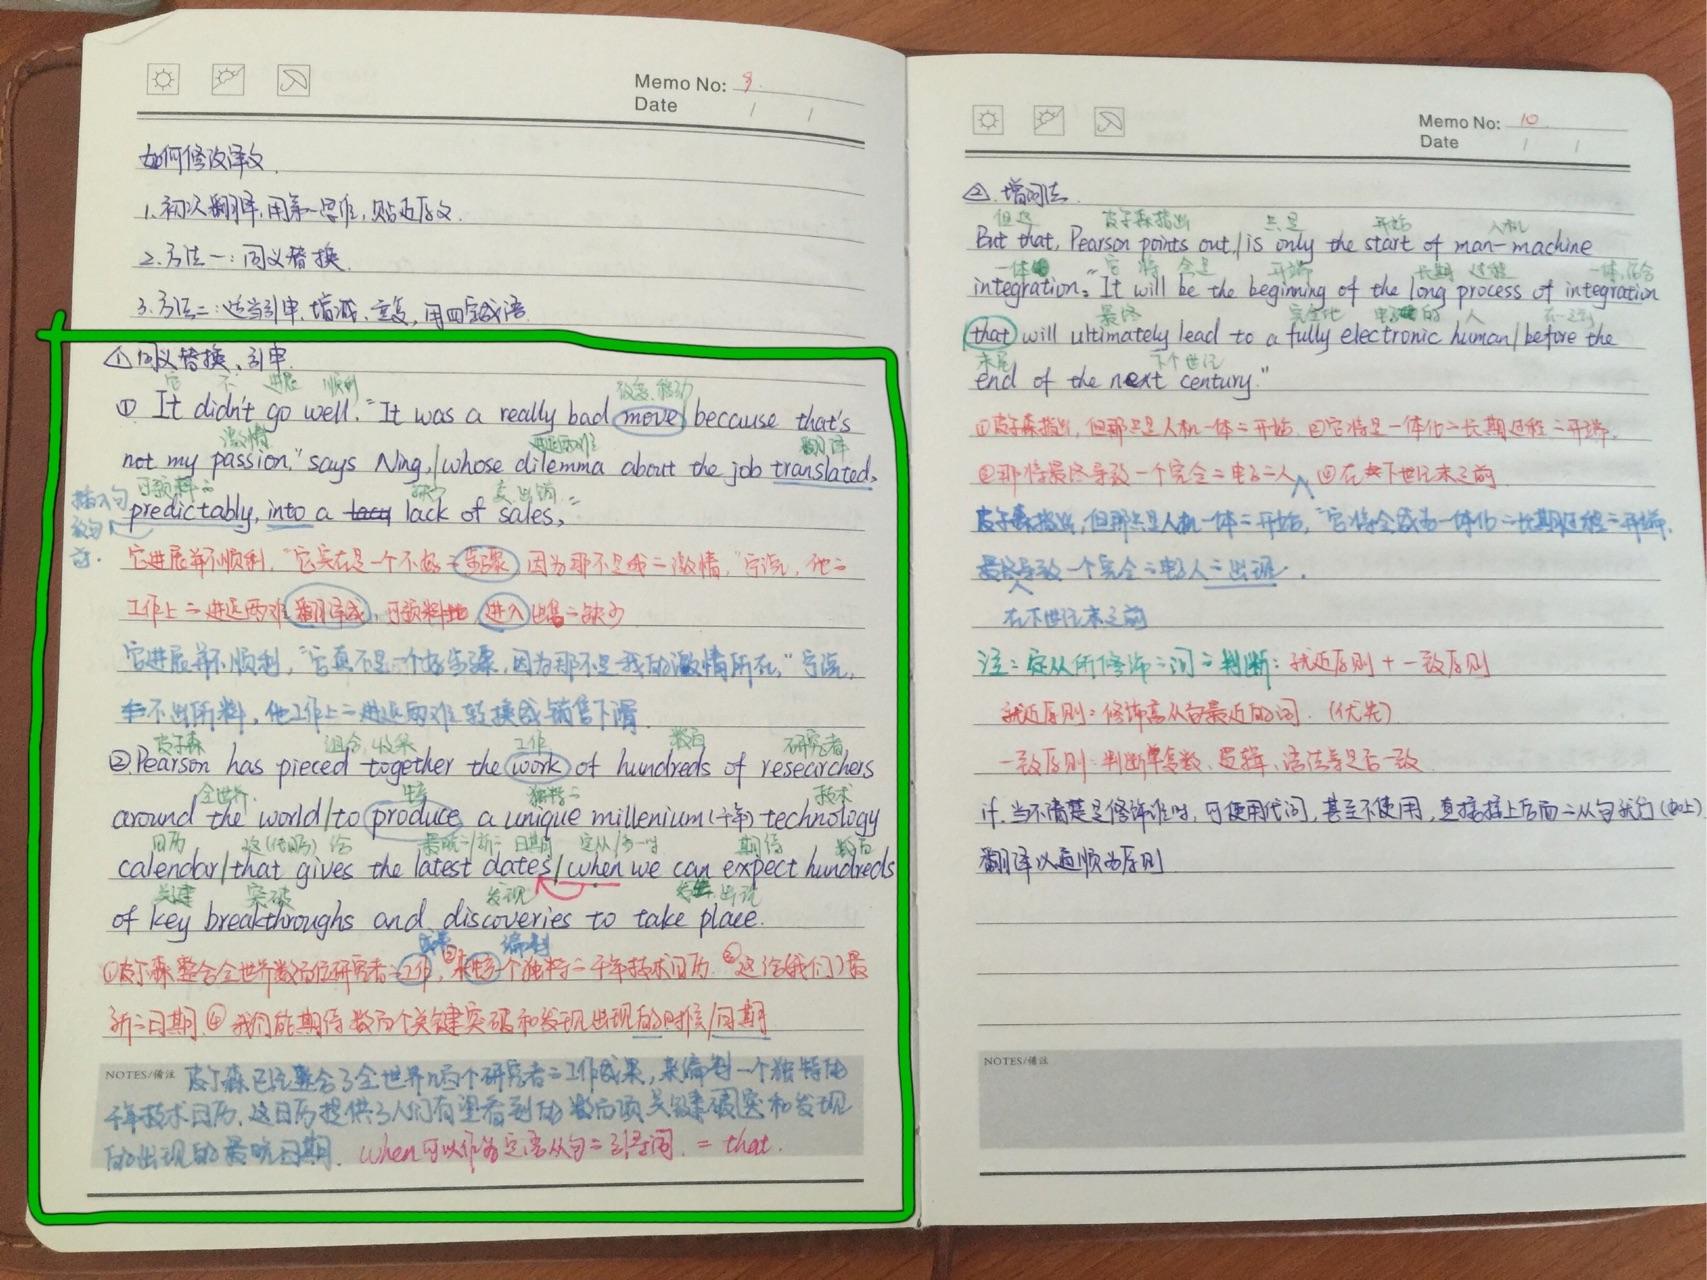 Memo No: 9
Date / /
如何修改译文
1.初次翻译,用第一思维,贴近原文.
2.方法一:同义替换.
3.方法二:适当引申、增减、变复,用四字成语.
①同义替换、引申.
它 不 进展 顺利 移动
① It didn't go well. "It was a really bad move because that's
激情 进退两难 翻译
not my passion," says Ning, / whose dilemma about the job translated,
可预料的 缺少 卖、出销
插入句 predictably, into a lack of sales,"
前.
它进展并不顺利,"它实在是一个不好的步骤,因为那不是我的激情,"宁说,他的
工作上的进退两难翻译成,可预料地,进入出售的缺少
它进展并不顺利,"它真不是一个好步骤,因为那不是我的激情所在,"宁说,
不出所料,他工作上的进退两难转换成销售下滑.
皮尔森 组合,收集 工作 数百 研究者
② Pearson has pieced together the work of hundreds of researchers
全世界 独特的 技术
around the world / to produce a unique millenium (千年) technology
日历 这(代日历) 给 最晚的/新的 日期 定从/当…时 期待 数百
calendar / that gives the latest dates / when we can expect hundreds
关键 突破 发现 出现
of key breakthroughs and discoveries to take place.
成果 编制
①皮尔森整合全世界数百位研究者的工作,③来生一个独特的千年技术日历. ②这给(我们)最
新的日期 ④我们能期待数百个关键突破和发现出现的时候/日期
NOTES/备注 皮尔森已经整合了全世界几百个研究者的工作成果,来编制一个独特的
千年技术日历,这日历提供了人们有望看到的数百项关键破突和发现
的出现的最晚日期. when可以作为定语从句的引导词. = that.
Memo No: 10
Date / /
② 增词法.
但这 皮尔森指出 只是 开始 人机
But that, Pearson points out, / is only the start of man-machine
一体 它 将 会是 开端 长期 过程 一体,结合
integration, "It will be the beginning of the long process of integration
最终 完全地 电子的 人 在…之前
that will ultimately lead to a fully electronic human / before the
末尾 下个世纪
end of the next century."
①皮尔森指出,但那只是人机一体的开始. ②它将是一体化的长期过程的开端.
③那将最终导致一个完全的电子的人 ④在下世纪末之前
皮尔森指出,但那只是人机一体的开始,"它将会成为一体化的长期过程的开端,
最终导致一个完全的电子人的出现.
在下世纪末之前
注:定从所修饰的词的判断:就近原则 + 一致原则
就近原则:修饰离从句最近的词. (优先)
一致原则:判断单复数、逻辑、语法等是否一致
if. 当不清楚是修饰谁时,可使用代词,甚至不使用,直接接上后面的从句就行(如上).
翻译以通顺为原则
NOTES/备注